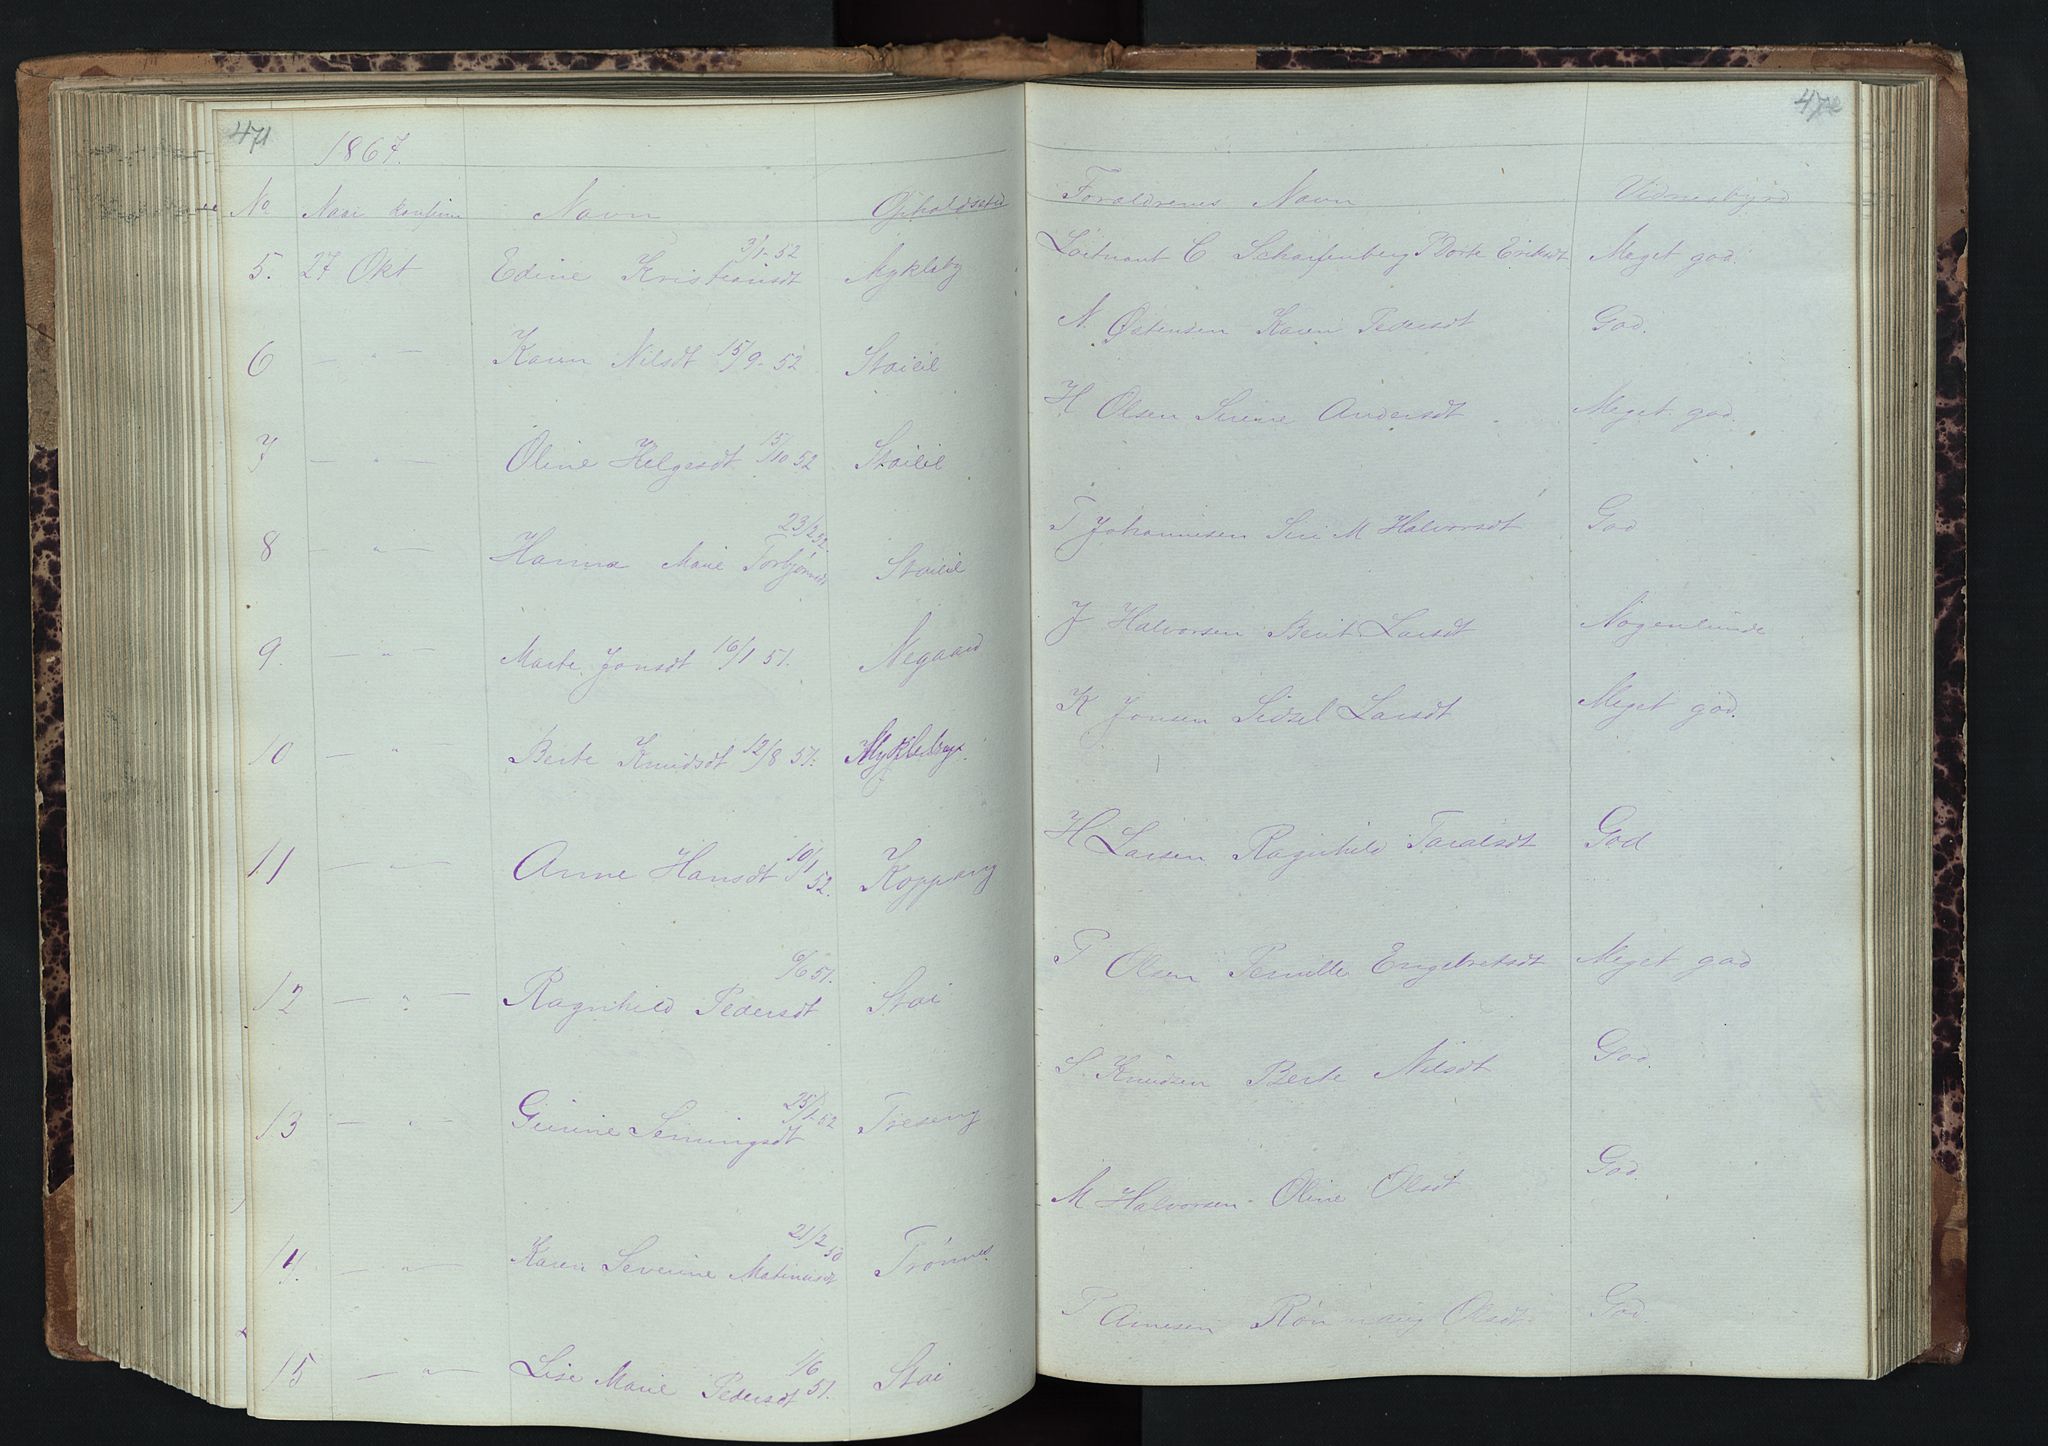 471
1867.
No Naar konfirm Navn Opholdssted
5. 27 Okt Edine Kristiansdt 3/1-52 Mykleby
6 — " — Karen Nilsdt 15/9-52 Staieie
7 — " — Oline Helgesdt 15/10 52 Staieie
8 — " — Hanna Marie Torbjørnsdt 23/2 52 Staieie
9. — " — Marte Jonsdt 16/1 51. Negaard
10 — " — Berte Knudsdt 12/8 51. Mykleby
11 — " — Anne Hansdt 10/1 52. Koppang
12 — " — Ragnhild Pedersdt 6/6 51. Stai
13 — " — Gurine Semingsdt 25/1-52 Treseng
14. — " — Karen Severine 21/2 50 Trønnes
15 — " — Lise Marie Pedersdt 1/6 51. Stai
472
Foraldrenes Navn Vidnesbyrd
Løitnant C Scharfenberg Dorte Eriksdt Meget god.
N. Østensen Karen Pedersdt God.
H Olsen Sirine Andersdt Meget god.
T Johannesen Siri M Halvorsdt God
J Halvorsen Berit Larsdt Nogenlunde
K Jonsen Sidsel Larsdt Meget god.
H Larsen Ragnhild Taralsdt God
P Olsen Pernille Engebretsdt Meget god
S. Knudsen Berte Nilsdt God.
M Halvorsen - Oline Olsdt God.
P Arnesen Rønnaug Olsdt God.